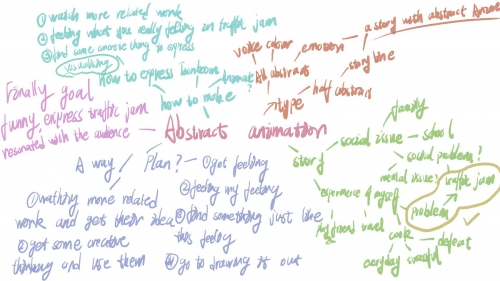 ① watch more related work
② feeling what you really feeling in traffic jam
③ find some amorose thing to express
visualizing
how to express
how to make?
Finally goal
funny, express traffic jam
resonated with the audience
Abstract animation
voice colour
emotion
a story with abstract
All abstract
story line
type
half abstract
story
social issue
family
school
social problem?
mental issue?
traffic jam
problem
experience of myself
friend travel
cook
defeat
everyday
A way
Plan?
① get feeling
② feeling my feeling
③ find something just like
this feeling
④ go to drawing it out
① wathing more related
work and get their idea
② get some creative
thinking and use them